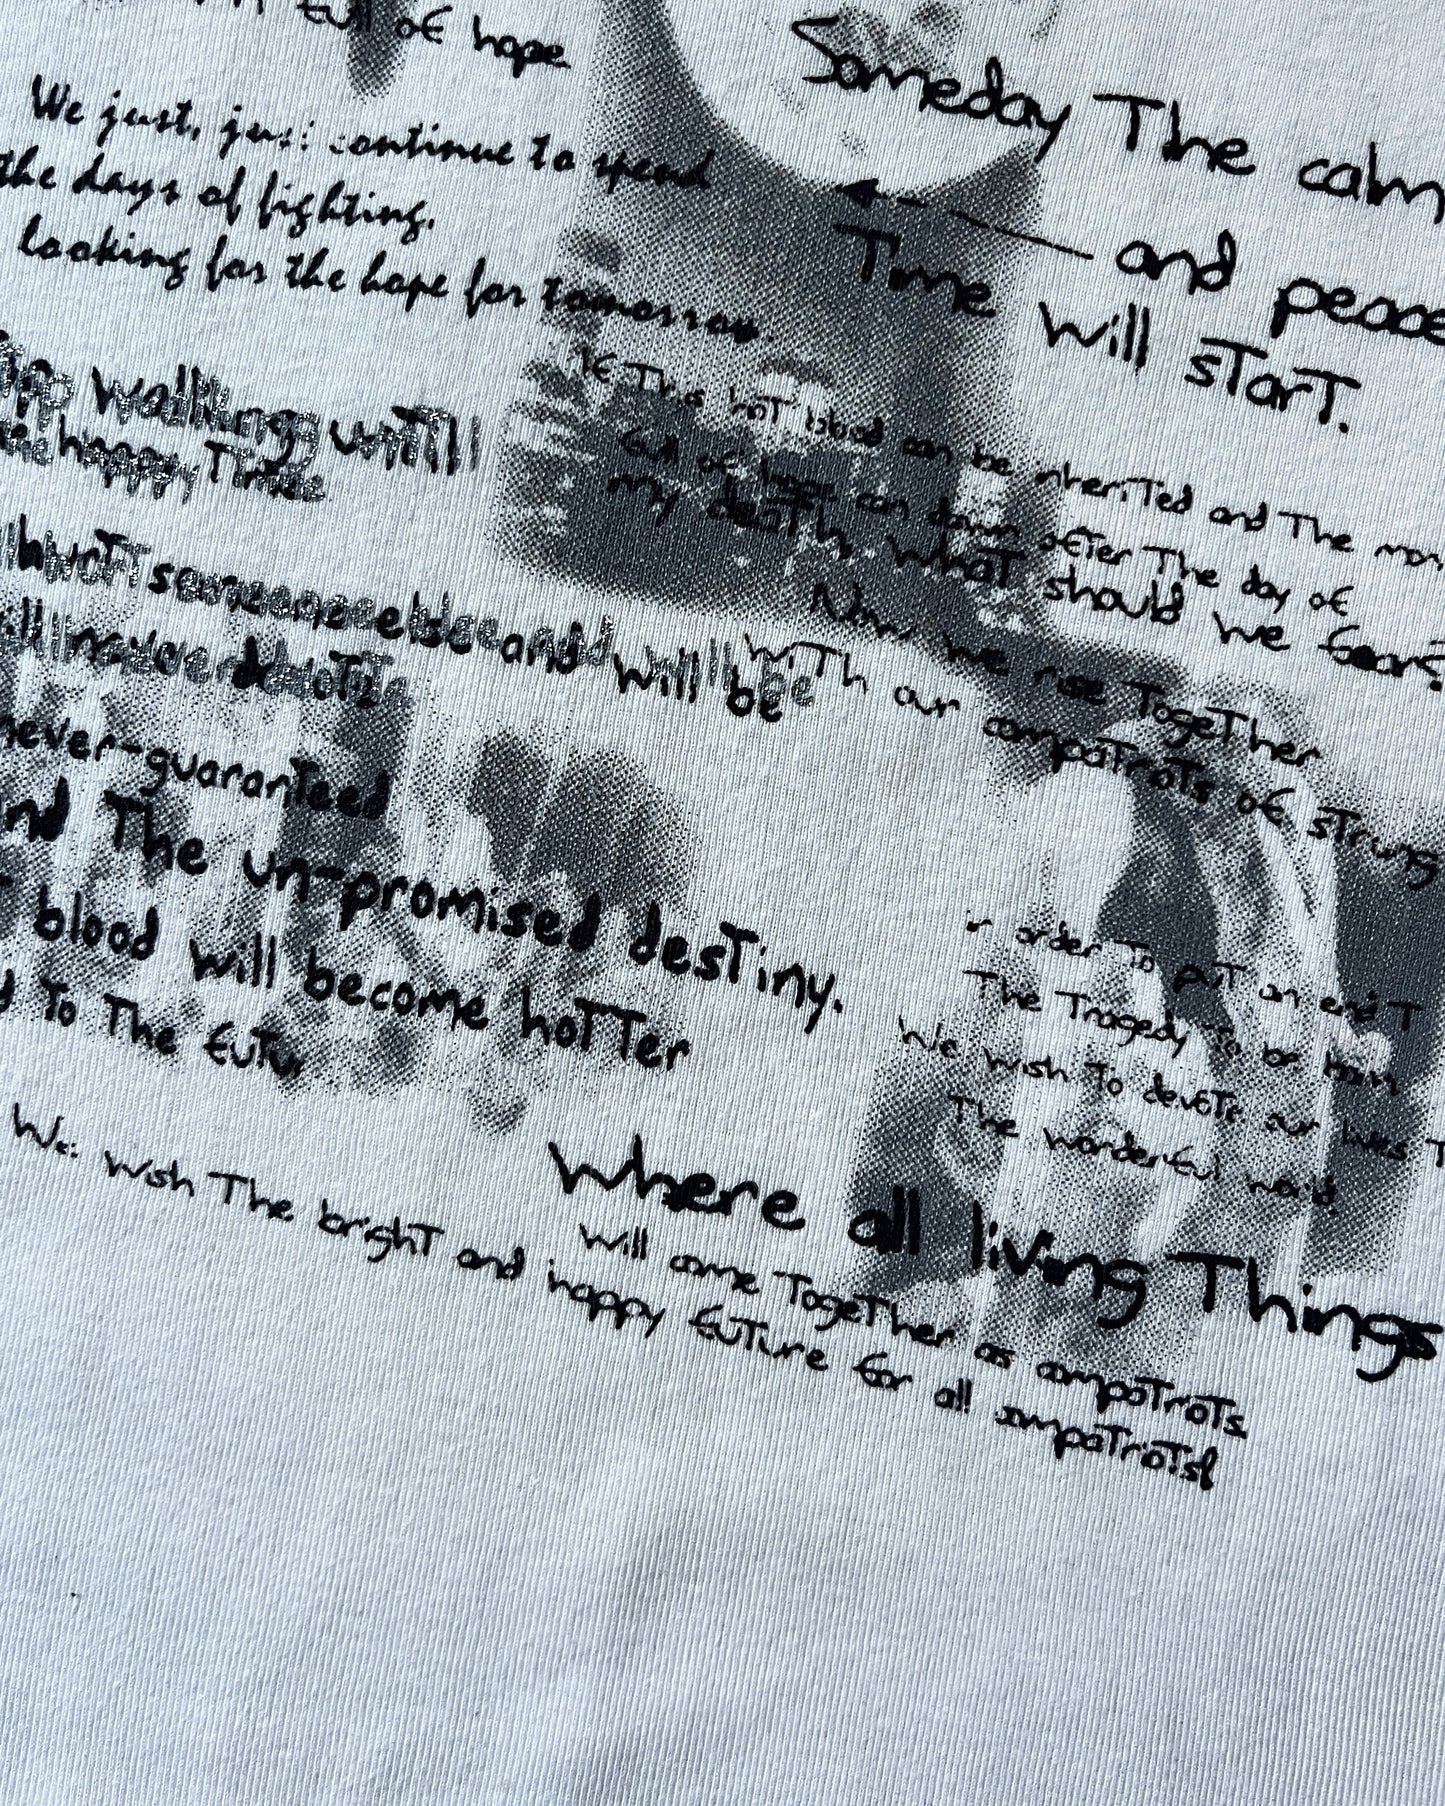 full of hope
We just, just continue to spend
the days of fighting,
looking for the hope for tomorrow
Someday The calm
and peace
Time will start.
walking untill
happy Times
If This hot blood can be inherited and The
full of hope can dawn after The day of
my death, what should we fear?
Now we rise Together
with our compatriots of
someone else and will be
never
never-guaranteed
The un-promised destiny.
blood will become hotter
To The
order To put an end
The Tragedy To be born
We wish To devote our lives
The wonderful world.
Where all living Things
will come TogeTher as compatriots.
We wish The bright and happy future for all compatriots!